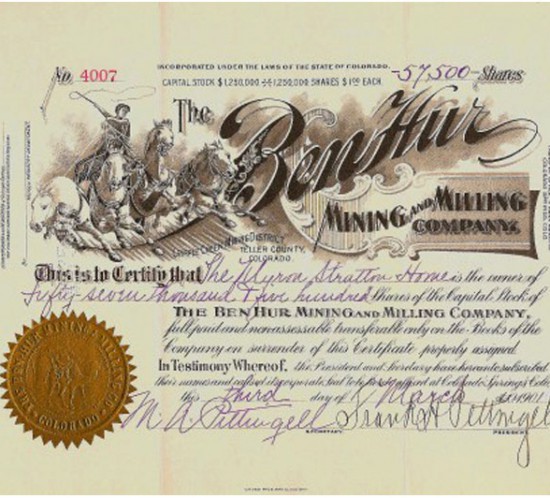 INCORPORATED UNDER THE LAWS OF THE STATE OF COLORADO.
No. 4007
CAPITAL STOCK $1,250,000 1,250,000 SHARES $1.00 EACH.
-57,500- Shares
The Ben Hur
MINING AND MILLING
COMPANY.
CRIPPLE CREEK MINING DISTRICT
TELLER COUNTY,
COLORADO.
This is to Certify that The Myron Stratton Home is the owner of
Fifty seven thousand Five hundred Shares of the Capital Stock of
THE BEN HUR MINING AND MILLING COMPANY,
full paid and nonassessable transferable only on the Books of the
Company on surrender of this Certificate properly assigned.
In Testimony Whereof, the President and Secretary have hereunto subscribed
their names and caused its corporate Seal to be affixed at Colorado Springs Colo
this Third day of March 1901
M. A. Pettingell Frank H Pettingell
SECRETARY. PRESIDENT.
THE BEN HUR MINING & MILLING CO.
COLORADO